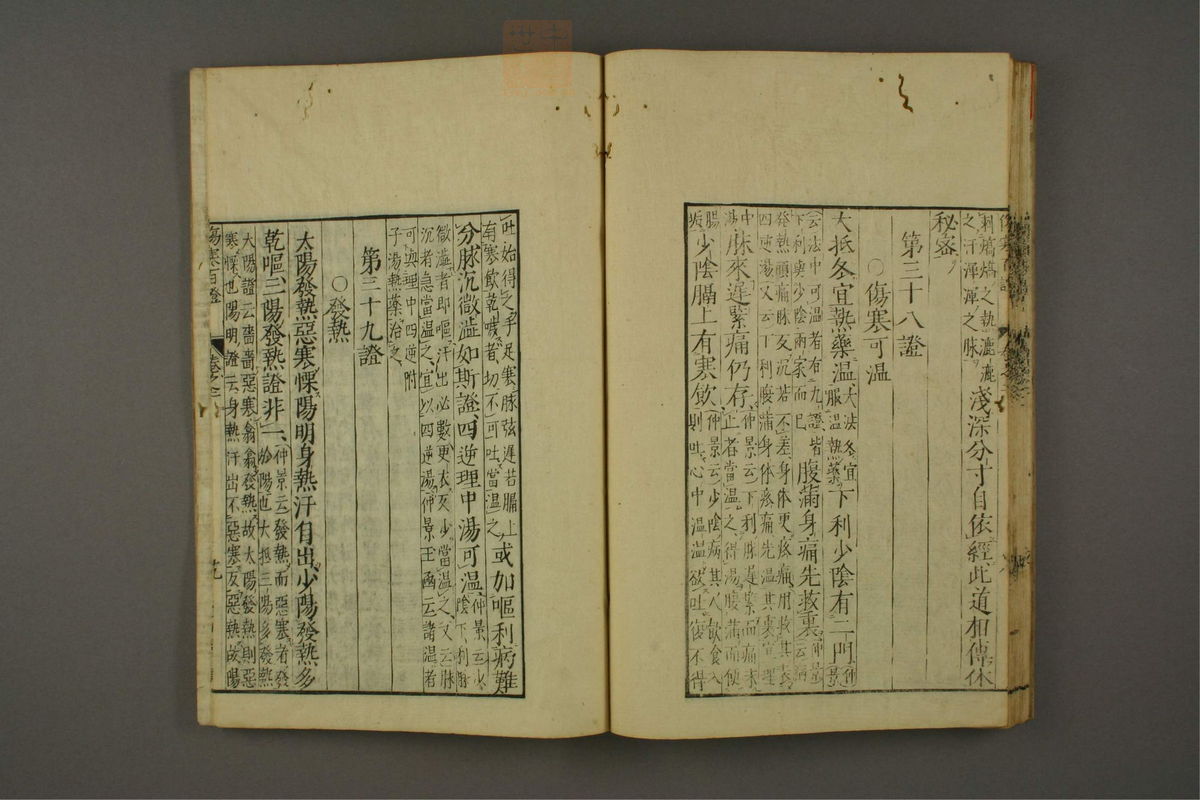 刺熇熇之熱漉漉
之汗渾渾之脉
淺深分寸自依經此道相傳休
秘密
第三十八證
○傷寒可温
大抵冬宜熱藥温
大法冬宜
服温熱藥
下利少陰有二門
仲景
云法中可温者有九證皆
下利與少陰兩家而已
腹滿身痛先救裏
仲景
云病
發熱頭痛脉反沉若不差身体更疼痛用救其裏
四逆湯又云下利腹滿身体疼痛先温其裏宜理
中
湯
脉來遲緊痛仍存
仲景云下利脉遲緊而痛未
正者當温之得湯腹滿而便
腸
垢
少陰膈上有寒飲
仲景云少陰病其人飲食入
則吐心中温温欲吐復不得
吐始得之手足寒脉弦遲若膈上
有寒飲乾嘔者切不可吐當温之
或加嘔利病難
分脉沉微澁如斯證四逆理中湯可温
仲景云少
陰下利脉
微澁者即嘔汗出必數更衣反少當温之又云脉
沉者急當温之宜以四逆湯仲景玉函云諸温者
可與理中四逆附
子湯熱藥治之
第三十九證
○發熱
太陽發熱惡寒慄陽明身熱汗自出少陽發熱多
乾嘔三陽發熱證非一
仲景云發熱而惡寒者發
於陽也大抵三陽多發熱
太陽證云嗇嗇惡寒翕翕發熱故太陽發熱則惡
寒慄也陽明證云身熱汗出不惡寒反惡熱故陽
傷寒百證